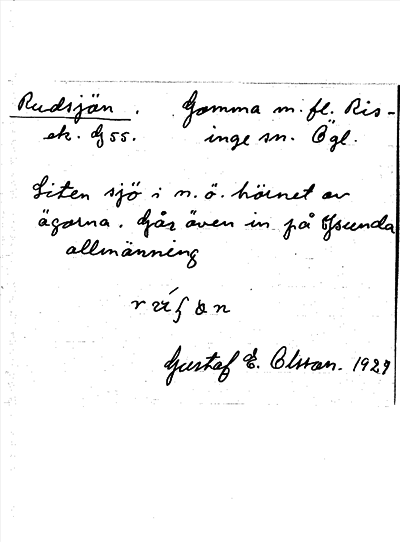 Rudsjön. Gomma m. fl. Ris-
ek. G 55. inge sn. Ögl.
Liten sjö i n.ö. hörnet av
ägorna. Går även in på Ysunda
allmänning
Gustaf E. Olsson. 1929